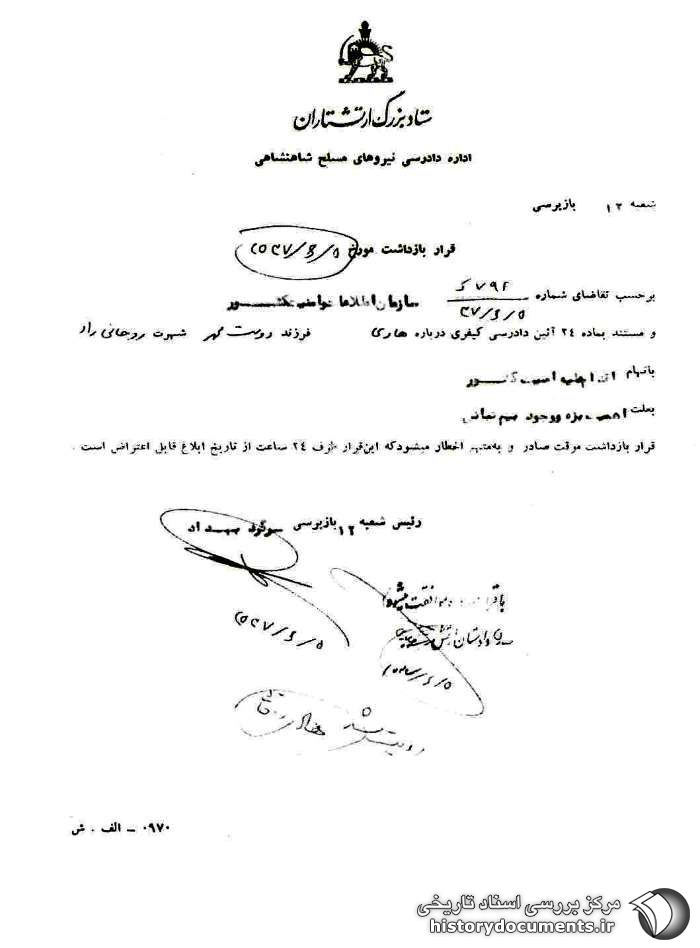 ستاد بزرگ ارتشتاران
اداره دادرسی نیروهای مسلح شاهنشاهی
شعبه ۱۲ بازپرسی
قرار بازداشت مورخ ۵/۶/۲۵۳۷
برحسب تقاضای شماره سازمان اطلاعات و امنیت کشور
۳۷/۶/۵
و مستند بماده ۲۴ آئین دادرسی کیفری درباره هادی فرزند دوست مهر شهرت روحانی راد
باتهام اقدام علیه امنیت کشور
بعلت اهمیت بزه و وجود بیم تبانی
قرار بازداشت موقت صادر و به متهم اخطار میشود که این قرار ظرف ۲۴ ساعت از تاریخ ابلاغ قابل اعتراض است .
رئیس شعبه ۱۲ بازپرسی سرگرد بهداد
با قرار موافقت میشود
دادستان ارتش
۲۵۳۷/۶/۵
رویت شد
۰۹۷۰ - الف . ش
مرکز بررسی اسناد تاریخی
historydocuments.ir